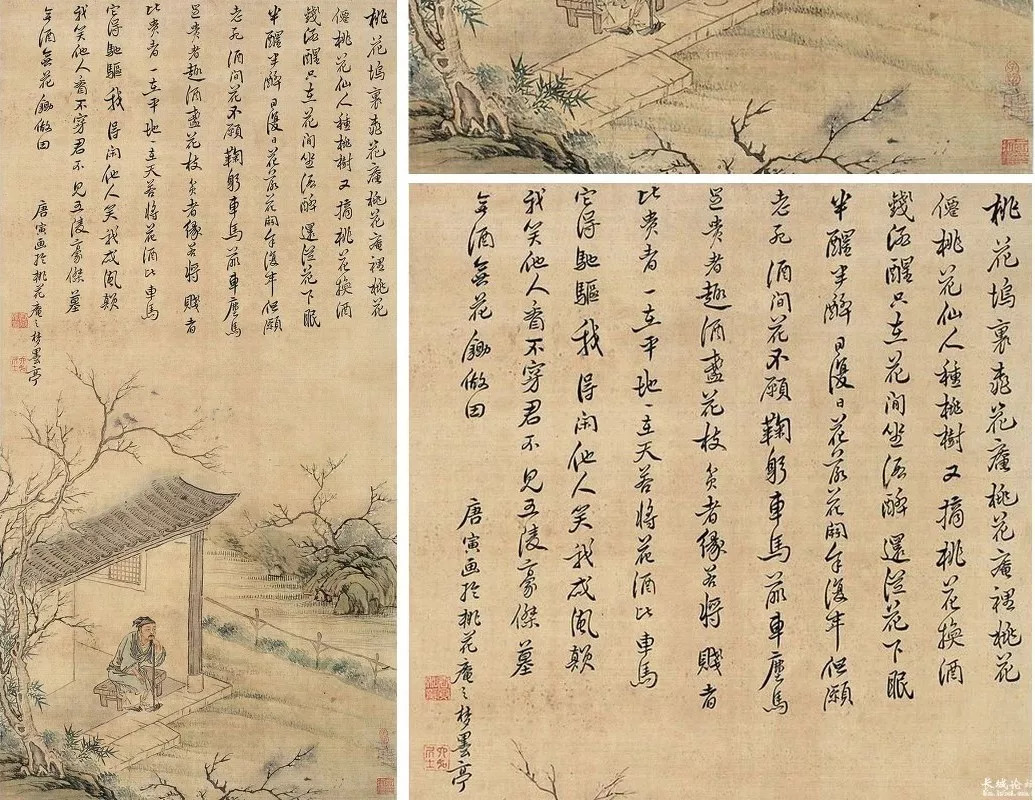 桃花塢裏桃花庵桃花庵裡桃花
僊桃花仙人種桃樹又摘桃花換酒
錢酒醒只在花間坐酒醉還從花下眠
半醒半醉日復日花落花開年復年但願
老死酒間花不願鞠躬車馬前車塵馬
足貴者趣酒盞花枝貧者緣若將賤者
比貴者一在平地一在天若將花酒比車馬
它得馳驅我得閑他人笑我忒風顛
我笑他人看不穿君不見五陵豪傑墓
無酒無花鋤做田
唐寅画於桃花庵之梦墨亭
桃花塢裏桃花庵桃花庵裡桃花
僊桃花仙人種桃樹又摘桃花換酒
錢酒醒只在花間坐酒醉還從花下眠
半醒半醉日復日花落花開年復年但願
老死酒間花不願鞠躬車馬前車塵馬
足貴者趣酒盞花枝貧者緣若將賤者
比貴者一在平地一在天若將花酒比車馬
它得馳驅我得閑他人笑我忒風顛
我笑他人看不穿君不見五陵豪傑墓
無酒無花鋤做田
唐寅画於桃花庵之梦墨亭
长城论